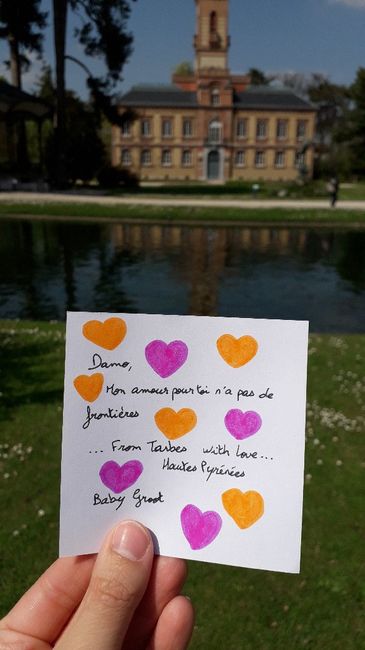 Damo,
Mon amour pour toi n'a pas de
frontières
... From Tarbes with love...
Hautes Pyrénées
Baby Groot